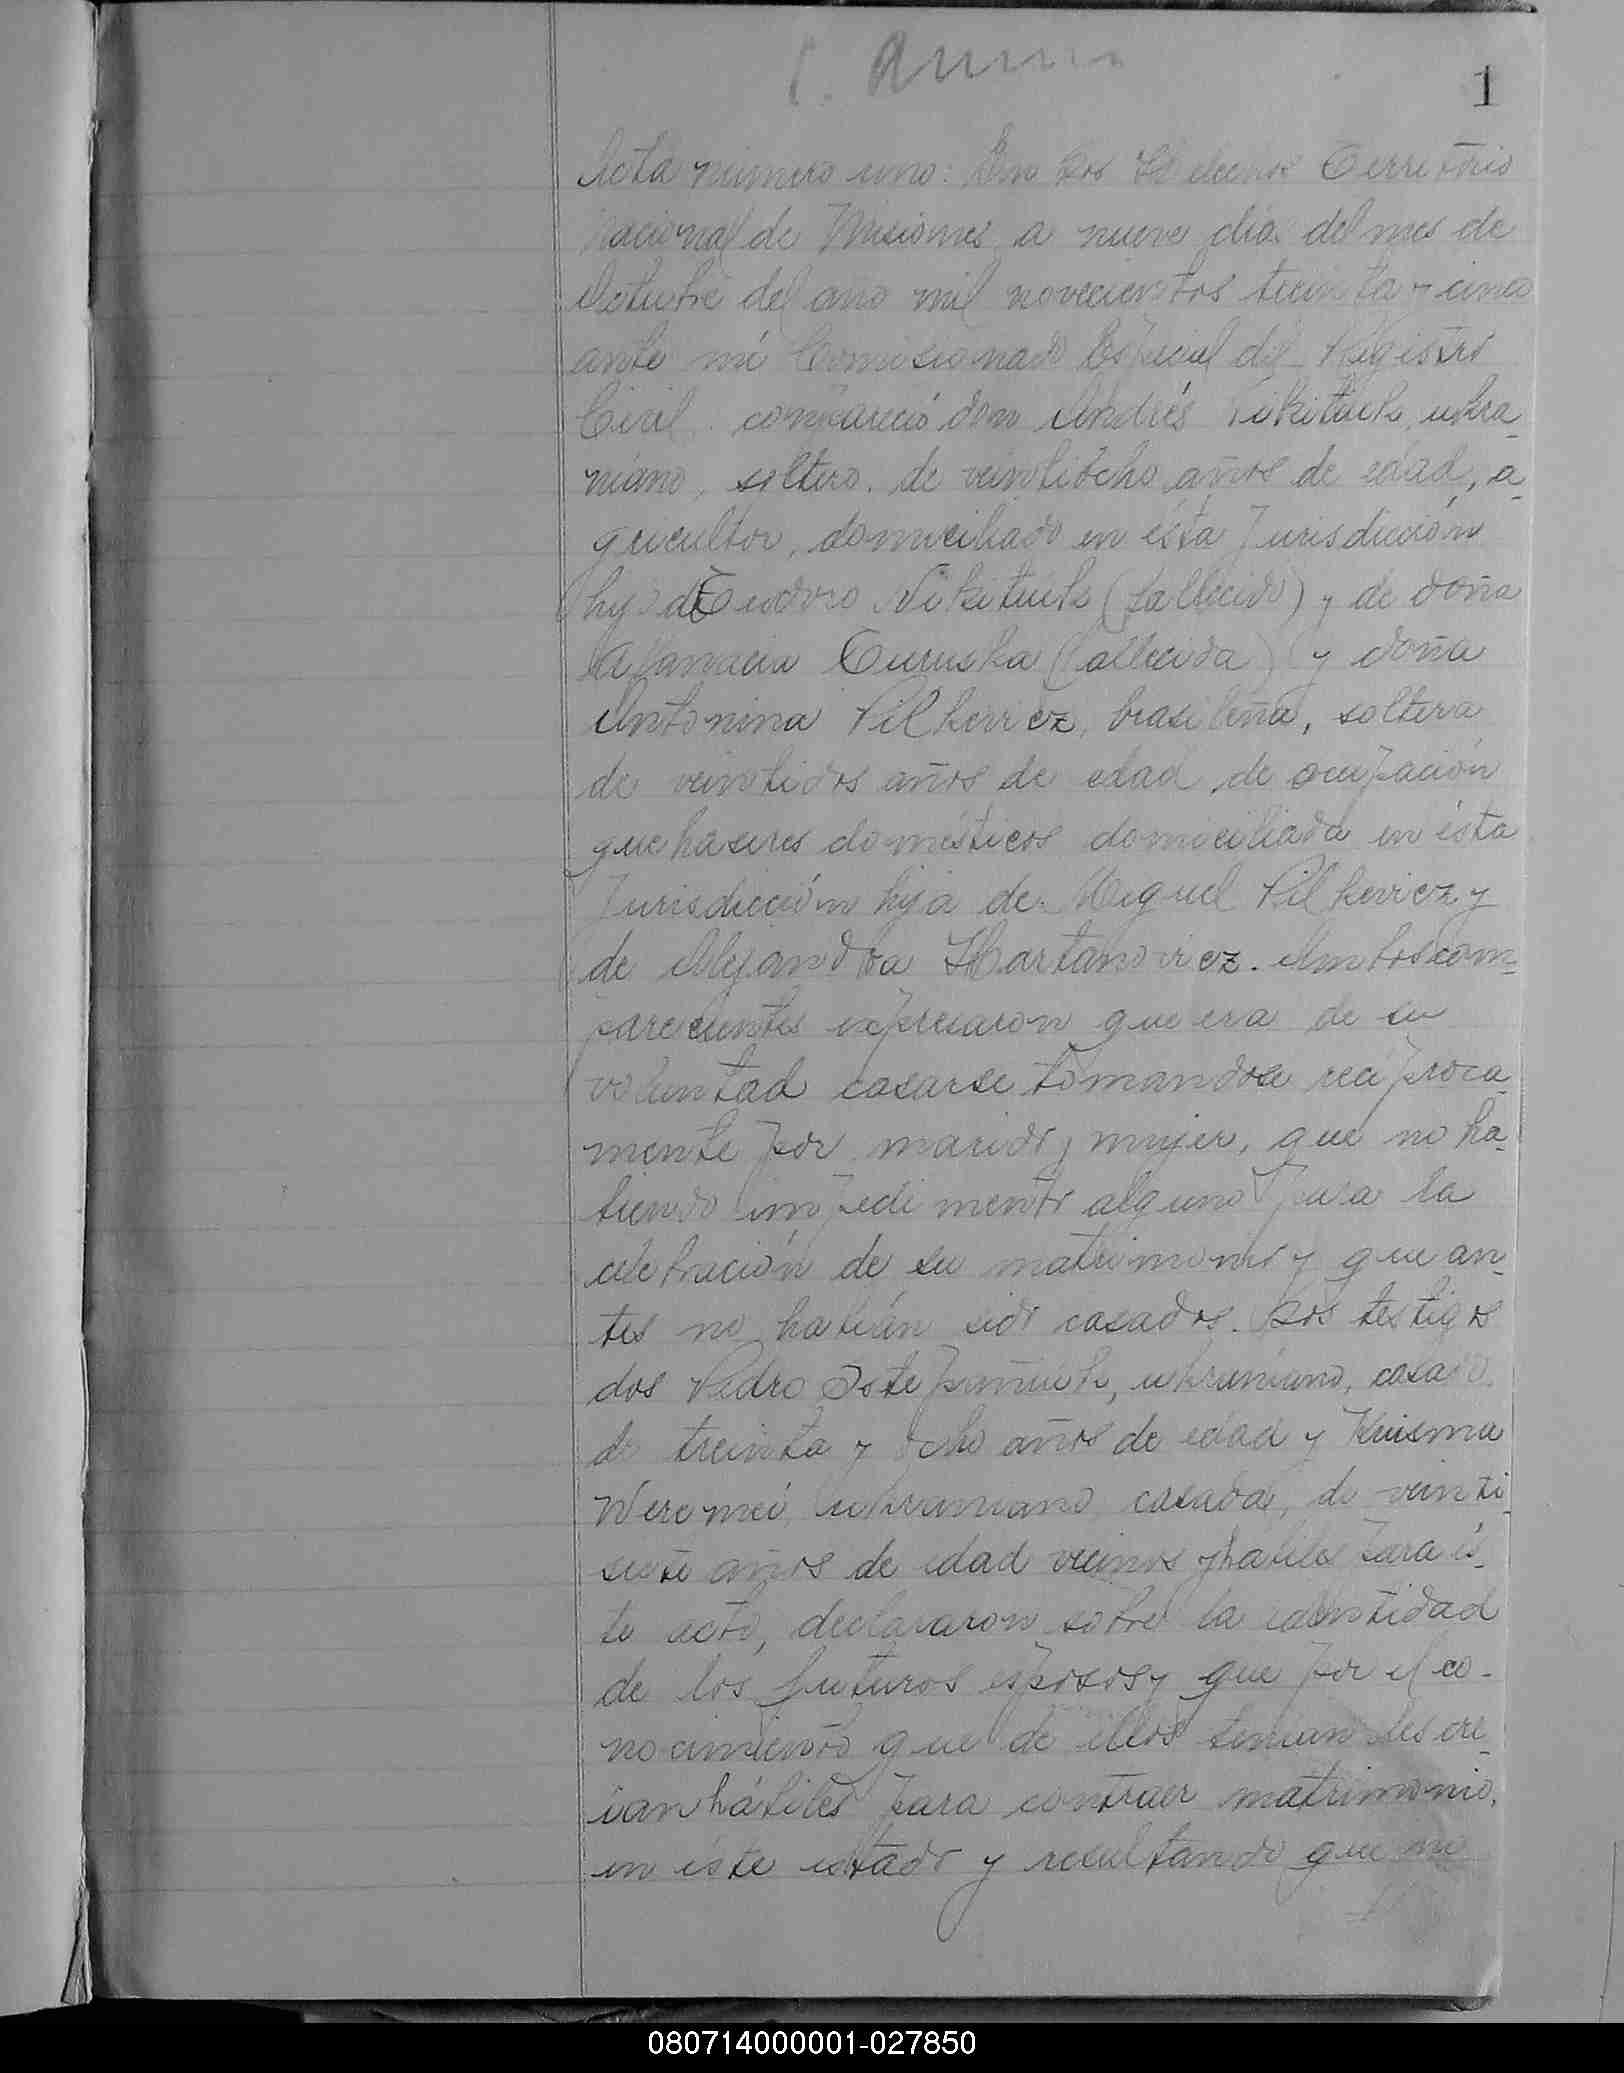 1
Acta número uno: En Los Helechos Territorio
Nacional de Misiones a nueve días del mes de
Octubre del año mil novecientos treinta y cinco
ante mi Comisionado Especial del Registro
Civil. compareció don Andrés Nikituik, ukra-
niano, soltero. de veintiocho años de edad, a-
gricultor, domiciliado en ésta Jurisdicción
hijo de Teodoro Nikituik (fallecido) y de doña
(fallecida) y doña
Antonina Pilkevicz, brasileña, soltera
de veintidos años de edad, de ocupación
quehaseres domésticos domiciliada en ésta
Jurisdicción hija de Miguel Pilkevicz y
de Alejandra Hartanovicz. Ambos com-
parecientes expresaron que era de su
voluntad casarse tomandose recíproca-
mente por marido y mujer, que no ha-
biendo impedimento alguno para la
celebración de su matrimonio y que an-
tes no habían sido casados. Los testigos
dos Pedro Ostepañiuk, ukraniano, casado.
de treinta y ocho años de edad y Kuisma
Weremei, ukraniano casada, de veinti
siete años de edad vecinos y habiles para és-
te acto, declararon sobre la identidad
de los futuros esposos y que por el co-
nocimiento que de ellos tenian les cre-
ian hábiles para contraer matrimonio,
en éste estado y resultando que no
080714000001-027850